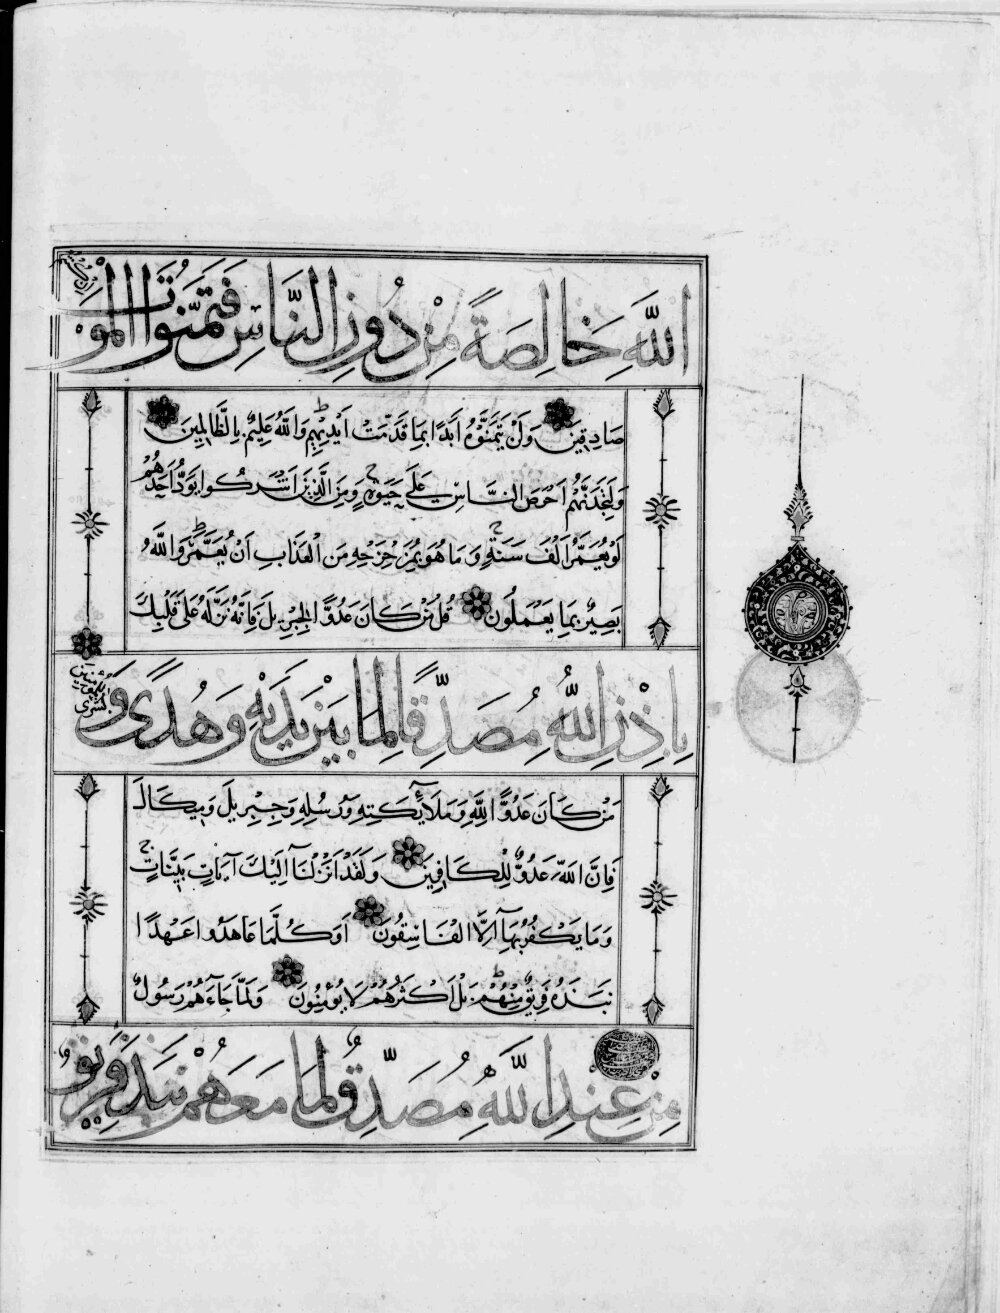 اللَّهِ خَالِصَةً مِنْ دُونِ النَّاسِ فَتَمَنَّوُا الْمَوْتَ إِنْ كُنْتُمْ
صَادِقِينَ وَلَنْ يَتَمَنَّوْهُ اَبَدًا بِمَا قَدَّمَتْ اَيْدِيهِمْ وَاللَّهُ عَلِيمٌ بِالظَّالِمِينَ
وَلَتَجِدَنَّهُمْ اَحْرَصَ النَّاسِ عَلَى حَيٰوةٍ وَمِنَ الَّذِينَ اَشْرَكُوا يَوَدُّ اَحَدُهُمْ
لَوْ يُعَمَّرُ اَلْفَ سَنَةٍ وَمَا هُوَ بِمُزَحْزِحِهِ مِنَ الْعَذَابِ اَنْ يُعَمَّرَ وَاللَّهُ
بَصِيرٌ بِمَا يَعْمَلُونَ قُلْ مَنْ كَانَ عَدُوًّا لِجِبْرِيلَ فَاِنَّهُ نَزَّلَهُ عَلَى قَلْبِكَ
بِاِذْنِ اللَّهِ مُصَدِّقًا لِمَا بَيْنَ يَدَيْهِ وَهُدًى وَبُشْرَى لِلْمُؤْمِنِينَ
مَنْ كَانَ عَدُوًّا لِلَّهِ وَمَلَائِكَتِهِ وَرُسُلِهِ وَجِبْرِيلَ وَمِيكَالَ
فَاِنَّ اللَّهَ عَدُوٌّ لِلْكَافِرِينَ وَلَقَدْ اَنْزَلْنَا اِلَيْكَ آيَاتٍ بَيِّنَاتٍ
وَمَا يَكْفُرُ بِهَا اِلَّا الْفَاسِقُونَ اَوَكُلَّمَا عَاهَدُوا عَهْدًا
نَبَذَهُ فَرِيقٌ مِنْهُمْ بَلْ اَكْثَرُهُمْ لَا يُؤْمِنُونَ وَلَمَّا جَاءَهُمْ رَسُولٌ
مِنْ عِنْدِ اللَّهِ مُصَدِّقٌ لِمَا مَعَهُمْ نَبَذَ فَرِيقٌ